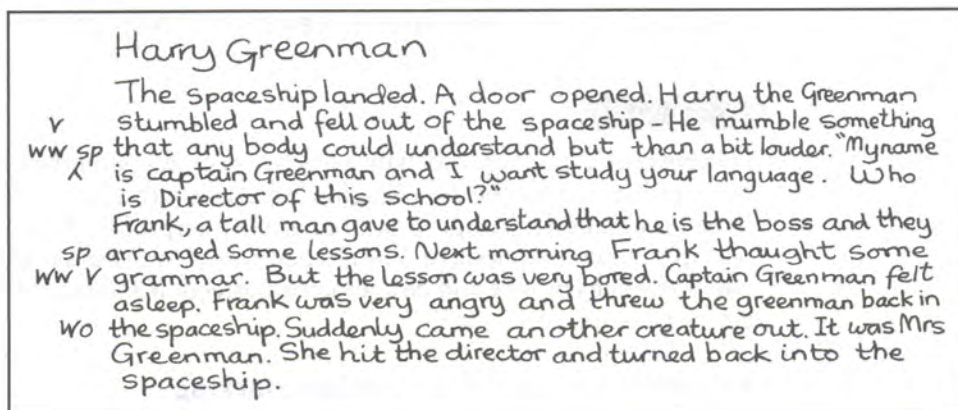 Harry Greenman
The spaceship landed. A door opened. Harry the Greenman
v stumbled and fell out of the spaceship - He mumble something
ww sp that any body could understand but than a bit louder. "My name
⁁ is captain Greenman and I want study your language. Who
is Director of this school?"
Frank, a tall man gave to understand that he is the boss and they
sp arranged some lessons. Next morning Frank thaught some
ww v grammar. But the lesson was very bored. Captain Greenman felt
asleep. Frank was very angry and threw the greenman back in
wo the spaceship. Suddenly came another creature out. It was Mrs
Greenman. She hit the director and turned back into the
spaceship.